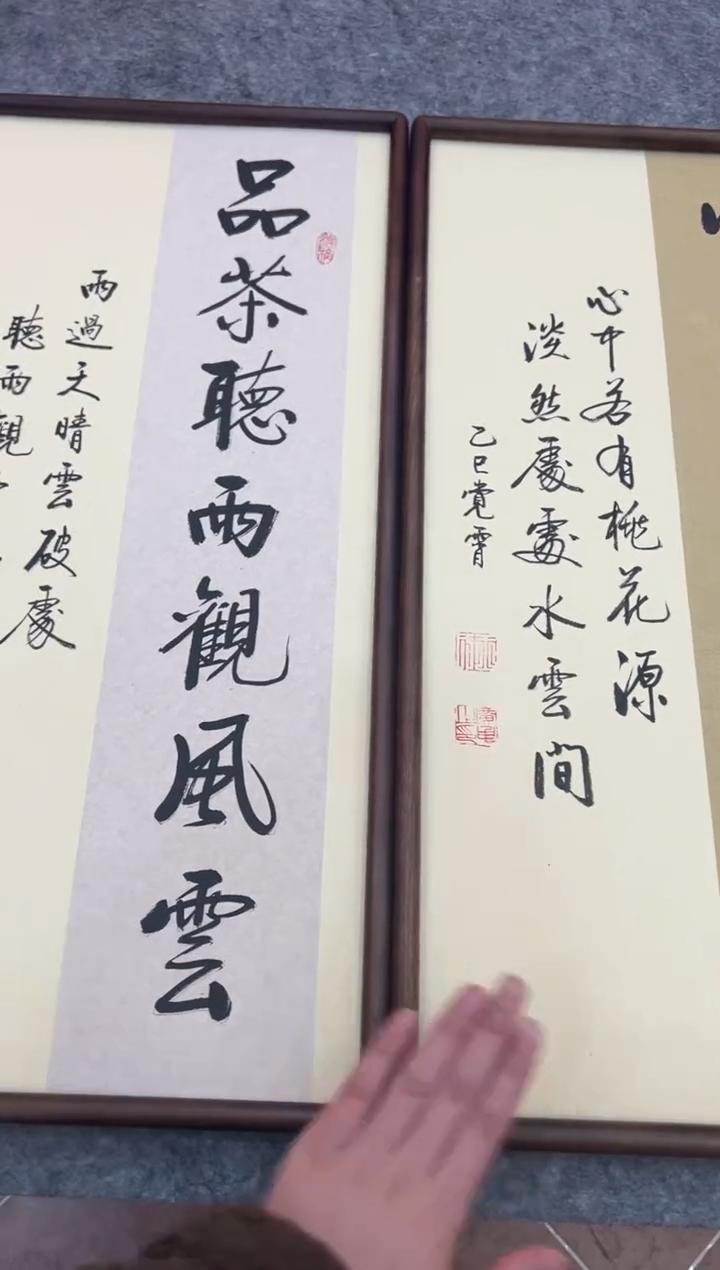 心中若有桃花源
淡然處處水雲間
乙巳覺霄
品茶聽雨觀風雲
雨過天晴雲破處
聽雨觀